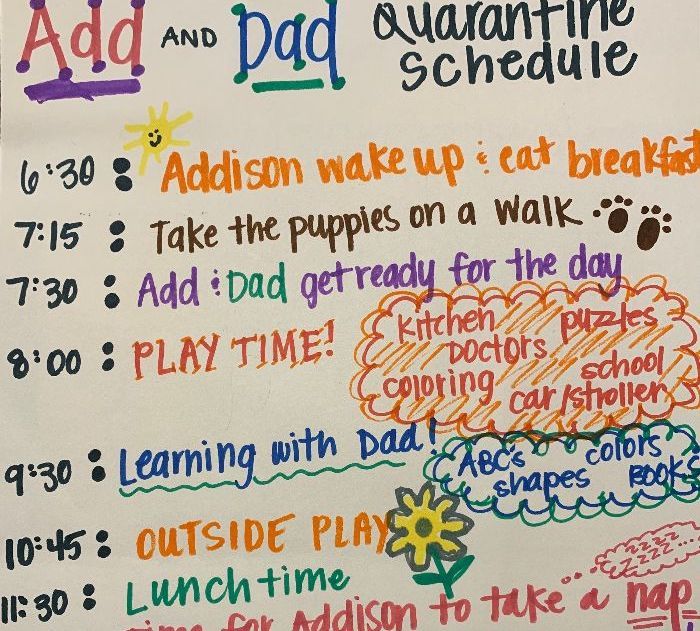 Add AND Dad Quarantine
schedule
6:30 : Addison wake up & eat breakfast
7:15 : Take the puppies on a walk
7:30 : Add & Dad get ready for the day
8:00 : PLAY TIME!
kitchen puzzles
DOCTORS
coloring school
car/stroller
9:30 : Learning with Dad!
ABC's colors
shapes BOOKS
10:45 : OUTSIDE PLAY
zzzz...
zzzz...
11:30 : Lunch time
time for Addison to take a nap